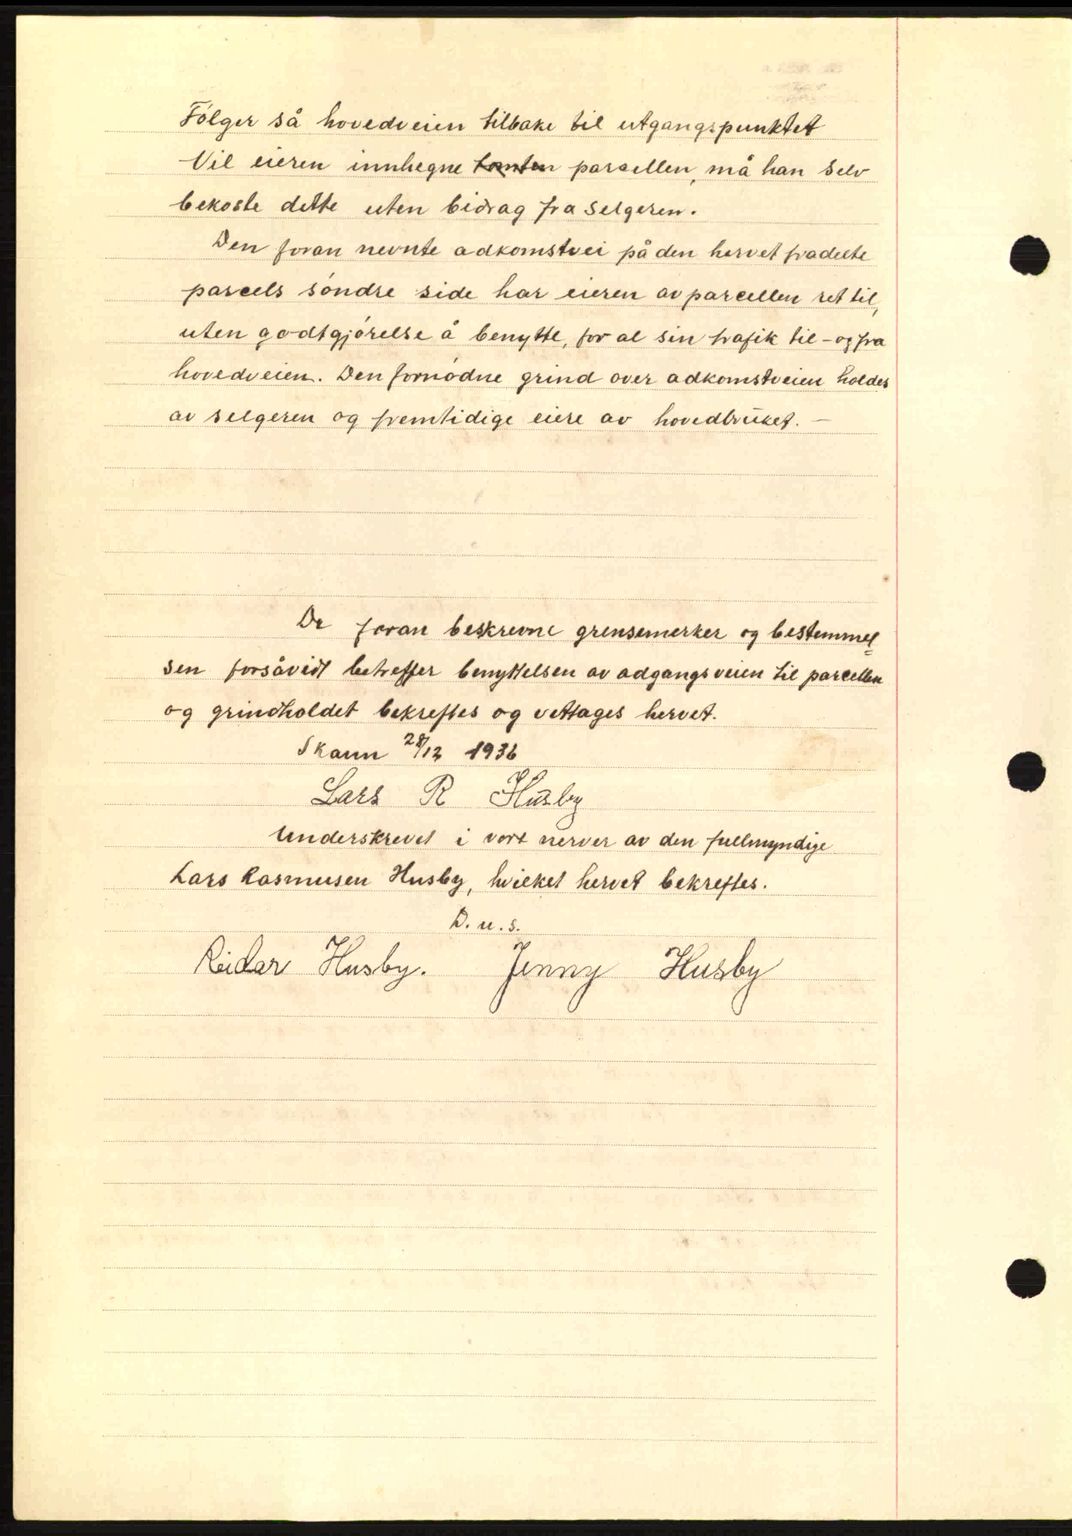 Følger så hovedveien tilbake til utgangspunktet
Vil eieren innhegne tomten parcellen, må han selv
bekoste dette uten bidrag fra selgeren.
Den foran nevnte adkomstvei på den hervet fradelte
parcels søndre side har eieren av parcellen ret til,
uten godtgjørelse å benytte, for al sin trafik til - og fra
hovedveien. Den fornødne grind over adkomstveien holdes
av selgeren og fremtidige eiere av hovedbruket. —
De foran beskrevne grensemerker og bestemmel=
sen forsåvidt betreffer benyttelsen av adgangsveien til parcellen
og grindholdet bekreftes og vettages hervet.
Skaun 28/12 1936
Lars R Husby
Underskrevet i vort nerver av den fullmyndige
Lars Rasmusen Husby, hvilket hervet bekreftes.
D. u. s.
Reidar Husby. Jenny Husby